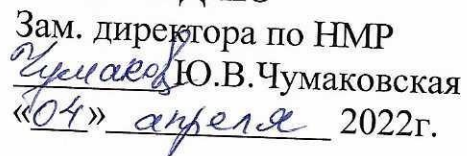 Зам. директора по НМР
Чумаков Ю.В.Чумаковская
«04» апреля 2022г.